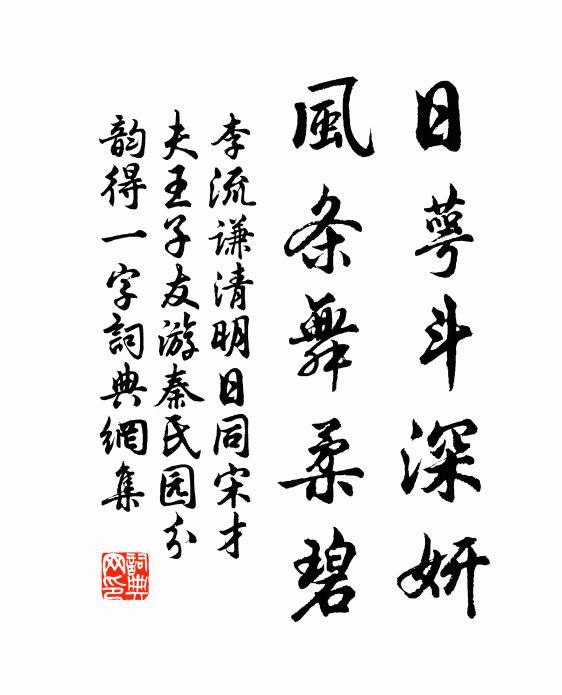 日萼斗深妍
風条舞柔碧
李流谦清明日同宋才
夫王子友游秦民园分
韵得一字詞典網集
詞典
网印